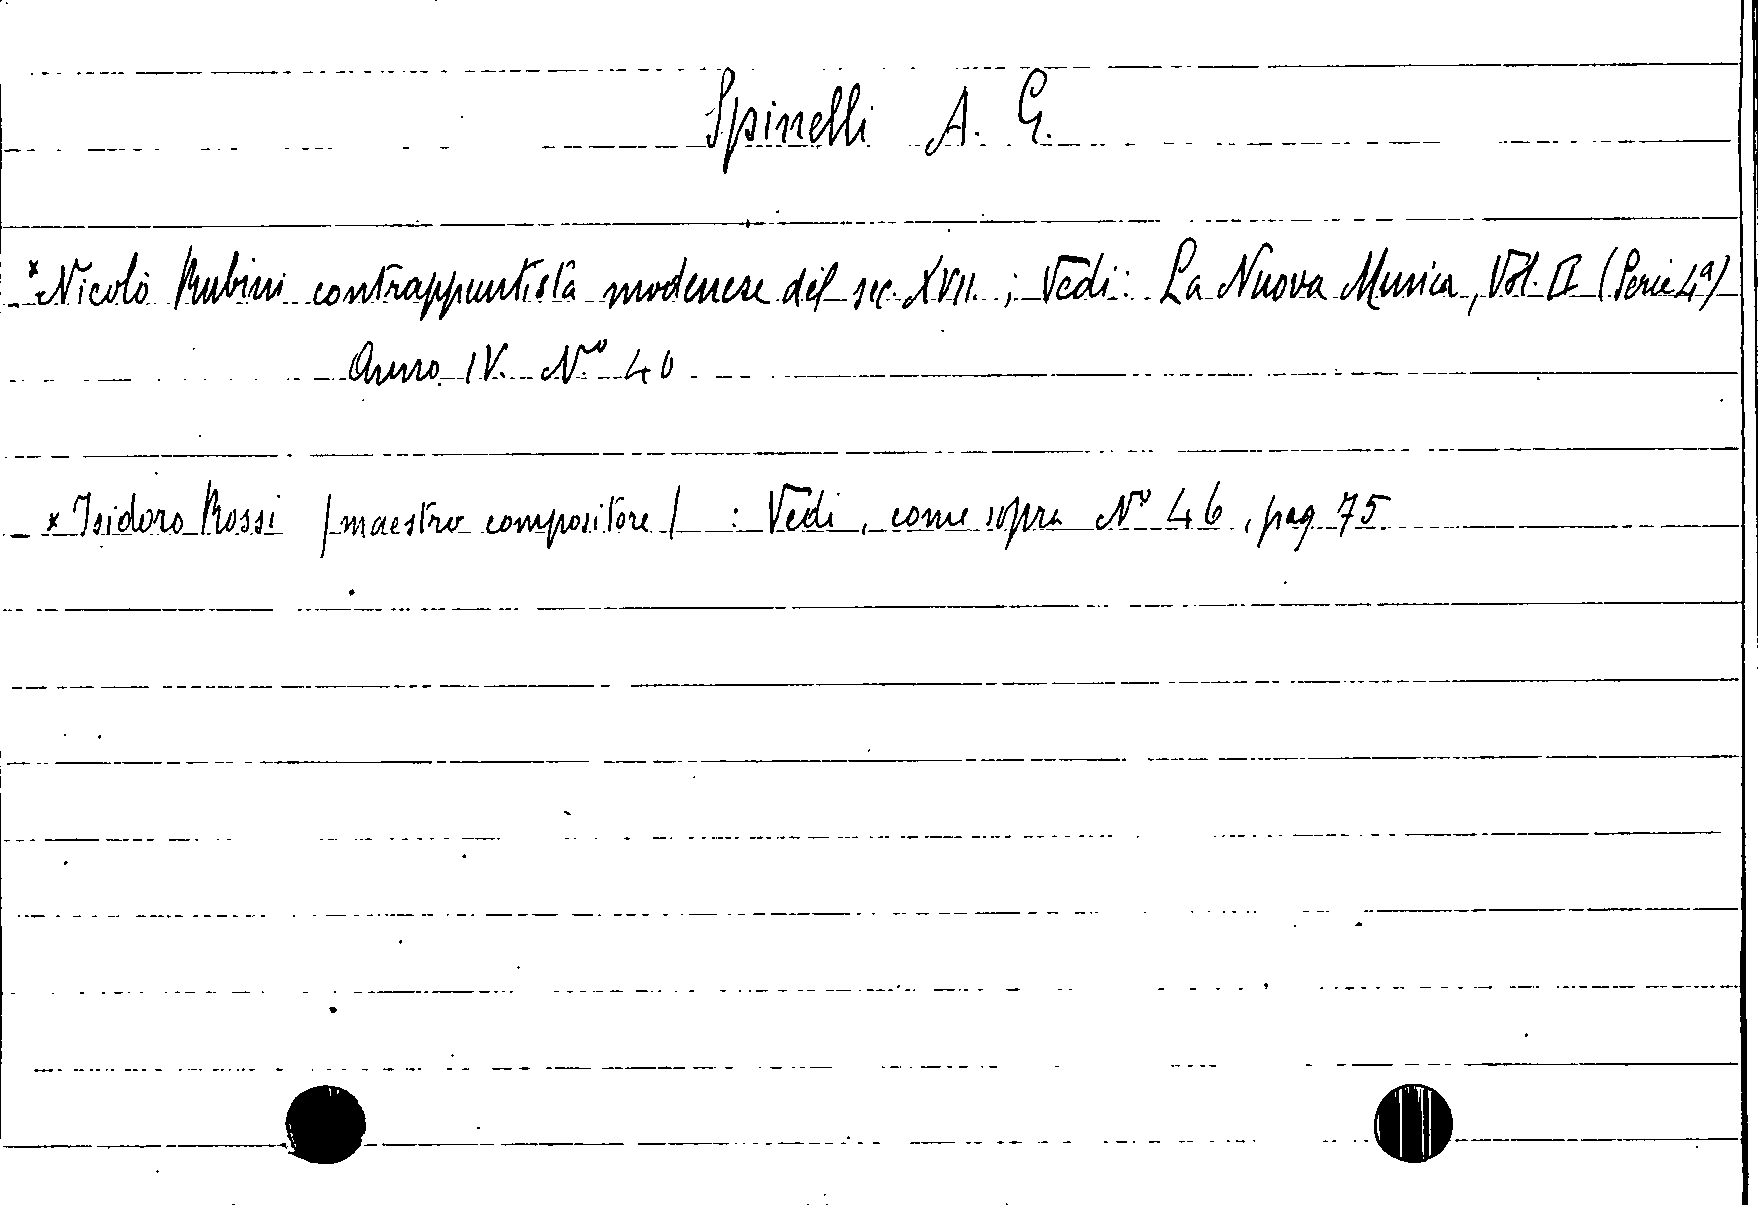 Spinelli A. G.
* Nicolò Rubini contrappuntista modenese del sec. XVII. ; Vedi: La Nuova Musica, Vol. II (Serie 4ª)
Anno IV. Nº 40
* Isidoro Rossi /maestro compositore/ : Vedi, come sopra Nº 46, pag. 75